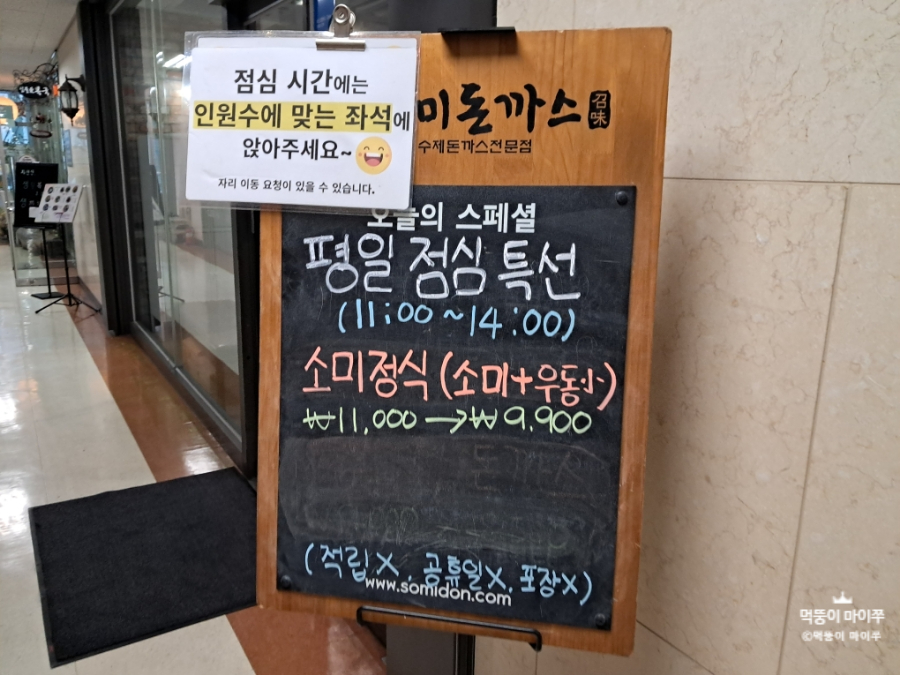 점심 시간에는
인원수에 맞는 좌석에
앉아주세요~
자리 이동 요청이 있을 수 있습니다.
미돈까스 召味
수제돈까스전문점
오늘의 스페셜
평일 점심 특선
(11:00~14:00)
소미정식 (소미+우동小)
₩11,000 → ₩9,900
(적립X, 공휴일X, 포장X)
www.somidon.com
먹뚱이 마이쭈
©먹뚱이 마이쭈